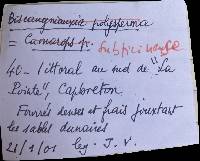 Biscogniauxia polysperma
= Camarops sp. subpicinuse
40 - littoral au sud de "La
Pointe", Capbreton
Fourrés denses et frais jouxtant
les sables dunaires
21/1/01 leg. J. V.